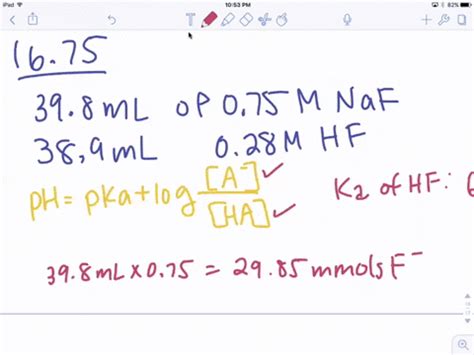 iPad 10:53 PM 82%
16.75
39.8mL of 0.75 M NaF
38,9mL 0.28M HF
pH= pKa+log [A-] ✓
[HA] ✓
Ka of HF:
39.8mL x 0.75 = 29.85 mmols F-